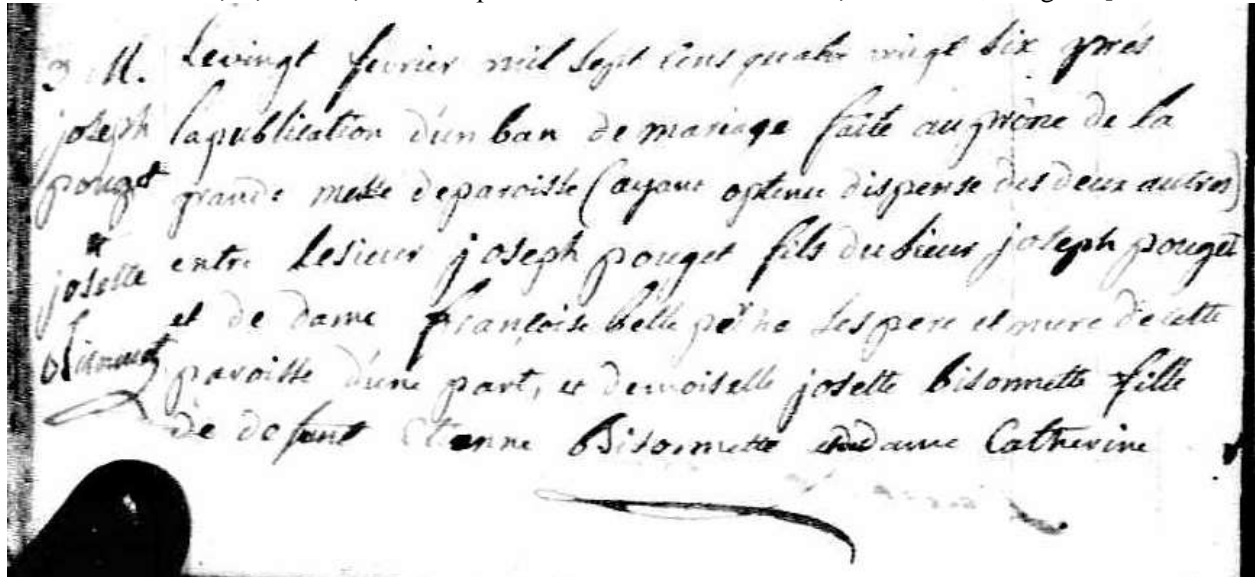 3 M.
joseph
pouget
et
josette
Bisonnet
Le vingt fevrier mil sept cens quatre vingt six près
la publication d'un ban de mariage faite au prône de la
grande messe de paroisse (ayant optenu dispense des deux autres)
entre le sieur joseph pouget fils du sieur joseph pouget
et de dame françoise belle peѓhe ses pere et mere de cette
paroisse d'une part, et demoiselle josette bisonnette fille
de defunt Etienne Bisonnette et dame Catherine